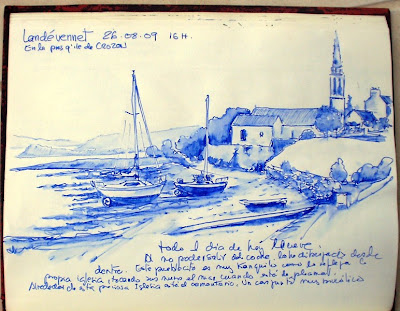 Landévennet 26-08-09 16H.
En la presq'ile de CROZON
todo el dia de hoy llueve.
Al no poder salir del coche, lo he dibujado desde
dentro. Este pueblecito es muy tranquilo como lo refleja
propia iglesia, tocando sus muros el mar cuando está de pleamar.
Alrededor de esta preciosa Iglesia está el cementerio. Un conjunto muy